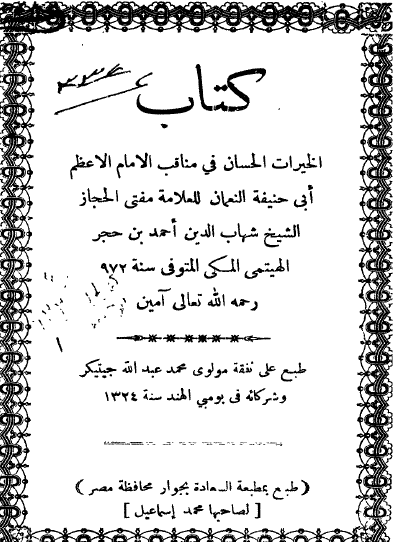 كتاب
الخيرات الحسان في مناقب الامام الاعظم
أبي حنيفة النعمان للعلامة مفتى الحجاز
الشيخ شهاب الدين أحمد بن حجر
الهيتمى المكى المتوفى سنة ٩٧٢
رحمه الله تعالى آمين
١
طبع على نفقة مولوى محمد عبد الله جيتيكر
وشركائه فى بومبي الهند سنة ١٣٢٤
( طبع بمطبعة السعادة بجوار محافظة مصر )
[ لصاحبها محمد إسماعيل ]